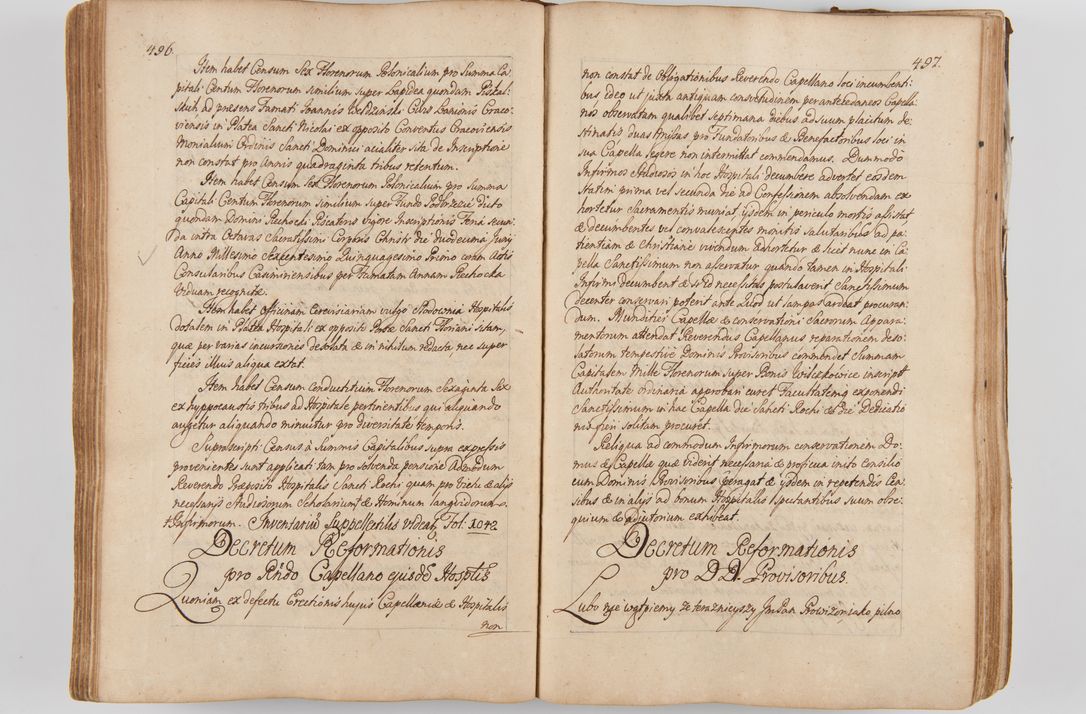 496.
Item habet Censum Sex Florenorum Polonicalium pro Summa Ca
pitali Centum Florenorum similium super Lapidea quondam
ad præsens Famati Joannis Civis Lanionis Craco:
viensis in Platea Sancti Nicolai ex opposito Conventus Cracoviensis
Monialium Ordinis Sancti Dominici acialiter sita de Inscriptione
non constat pro Annis quadraginta tribus retentum.
Item habet Censum Sex Florenorum Polonicalium pro Summa
Capitali Centum Florenorum similium super Fundo dicto
quondam Domini Piechocki Piscatoris vigore Inscriptionis Feria secun:
da intra Octavas Sacratissimi Corporis Christi die duodecima Junij
Anno Millesimo Sexcentesimo Quinquagesimo Primo coram Actis
Consularibus Casimiriensibus per Famatam Annam Piechocka
viduam recognitæ.
Item habet Officinam Cerevisiariam vulgo Slodovnia Hospitalis
dotalem in Platea Hospitali ex opposito Portæ Sancti Floriani sitam,
quæ per varias incursiones desolata & in nihilum redacta nec super
ficies illius aliqua extat.
Item habet Censum conductitium Florenorum Sexaginta Sex
ex hyppocaustis tribus ad Hospitale pertinentibus qui aliquando
augetur aliquando minuitur pro diversitate temporis.
Suprascripti Census à Summis Capitalibus supra expressis
provenientes sunt applicati tam pro solvenda pensione Admodum
Reverendo Præposito Hospitalis Sancti Rochi quam pro victu & alijs
necessarijs Studiosorum Scholarium & Hominum languidorum
Infirmorum. Inventariũ Suppellectilis videas Fol: 1042
Decretum Reformationis
pro Rndo Capellano ejusdẽ Hosplis
Quoniam ex defectu Erectionis hujus Capellaniæ & Hospitalis
non
497.
non constat de Obligationibus Reverendo Capellano loci incumbenti:
bus ideo ut juxta antiquam consvetudinem per antecedaneos Capella:
nos observatam qualibet septimana diebus ad suum placitum de:
stinatis duas Missas pro Fundatoribus & Benefactoribus loci in
sua Capella legere non intermittat commendamus. Dummodo
Infirmos Studiosos in hoc Hospitali decumbere advertet eosdem
statim prima vel secunda die ad Confessionem absolvendam ex
hortetur Sacramentis muniat ijsdem in periculo mortis assistat
& decumbentes vel convalescentes monitis salutaribus ad pa:
tientiam & Christiane vivendum adhortetur & licet nunc in Ca
pella Sanctissimum non asservatur quando tamen in Hospitali
Infirmi Decumbent & id necessitas postulaverit Sanctissimum
decenter conservari poterit ante Quod ut lampas ardeat procuran:
dum. Munditiei Capellæ & conservationi Sacrorum Appara:
mentorum attendat Reverendus Capellanus reparationem deso:
latorum tempestive Dominis Provisoribus commendet Summam
Capitalem Mille Florenorum super Bonis inscript:
Authoritate ordinaria approbari curet Facultatemq̃ exponendi
Sanctissimum in hac Capella die Sancti Rochi & die Dedicatio
nis fieri solitam procuret.
Reliqua ad commodum Infirmorum conservationem Do:
mus & Capellæ quæ viderit necessaria & proficua inito consilio
cum Dominis Provisoribus peragat & ijsdem in repetendis Cen
sibus & in alijs ad bonum Hospitalis spectantibus suum obse:
quium & adjutorium exhibeat.
Decretum Reformationis
pro D D. Provisoribus.
Lubo nie wątpiemy że teraznieyszy JmPan Prowizor iako pilno